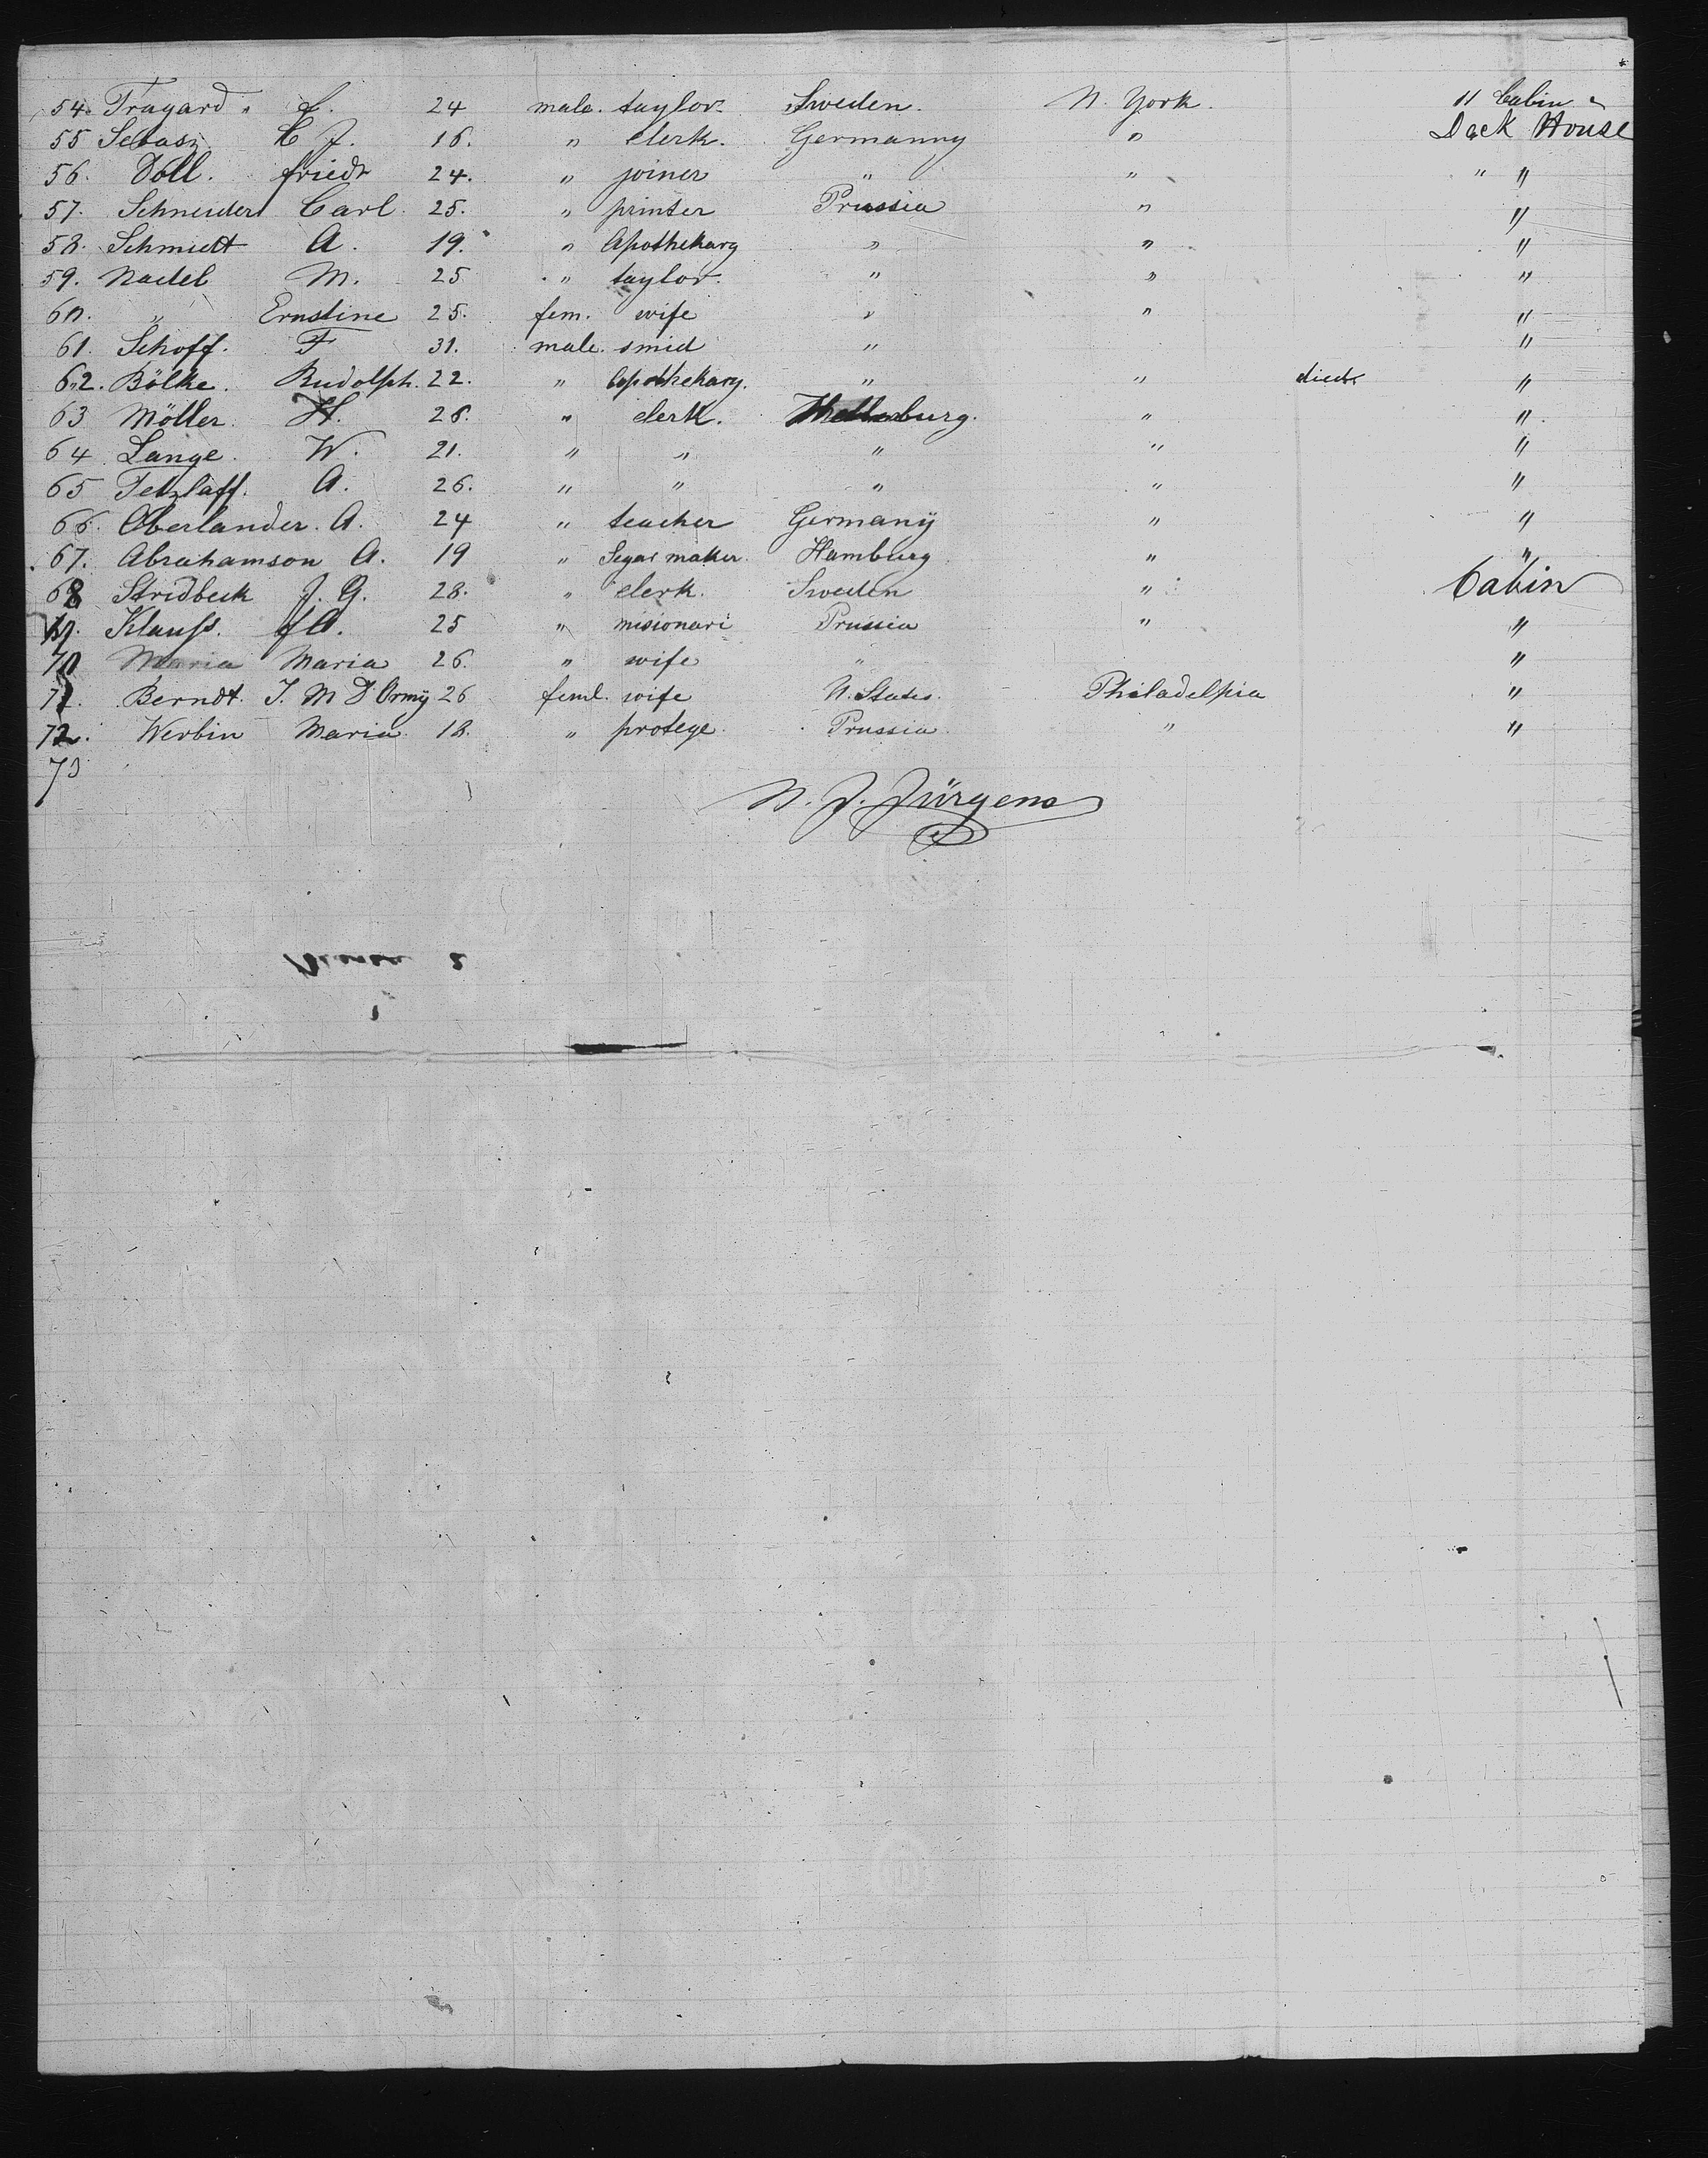 54. Tragard " f. 24 male. taylor. Sweden. N. York. 11 Cabin &
55 Sebasz. C J. 16. " clerk. Germanny " Deck House
56. Doll. friedr 24. " joiner " " " "
57. Schneider Carl. 25. " printer Prussia " "
58. Schmidt A. 19. " Apothekary " " "
59. Nadel M. 25 " taylor. " " "
60. " Ernstine 25. fem. wife " " "
61. Schoff. F 31. male. smid " "
62. Bölke. Rudolph. 22. " Apothekary. " " died. "
63 Möller. H. 26. " clerk. burg. " "
64 Lange. W. 21. " " " " "
65 Tetzlaff. A. 26. " " " " "
66. Oberlander. A. 24 " teacher Germany " "
67. Abrahamson A. 19 " Segar maker. Hamburg " "
68 Stridbeck J. G. 28. " clerk. Sweden " Cabin
Klauss. 25 " misionari Prussia " "
70 Maria Maria 26. " wife " "
71. Berndt. J. M D Ormy 26 feml. wife U. States. Philadelpia "
72. Werbin Maria. 18. " protege. Prussia. " "
73
N. J. Jürgens